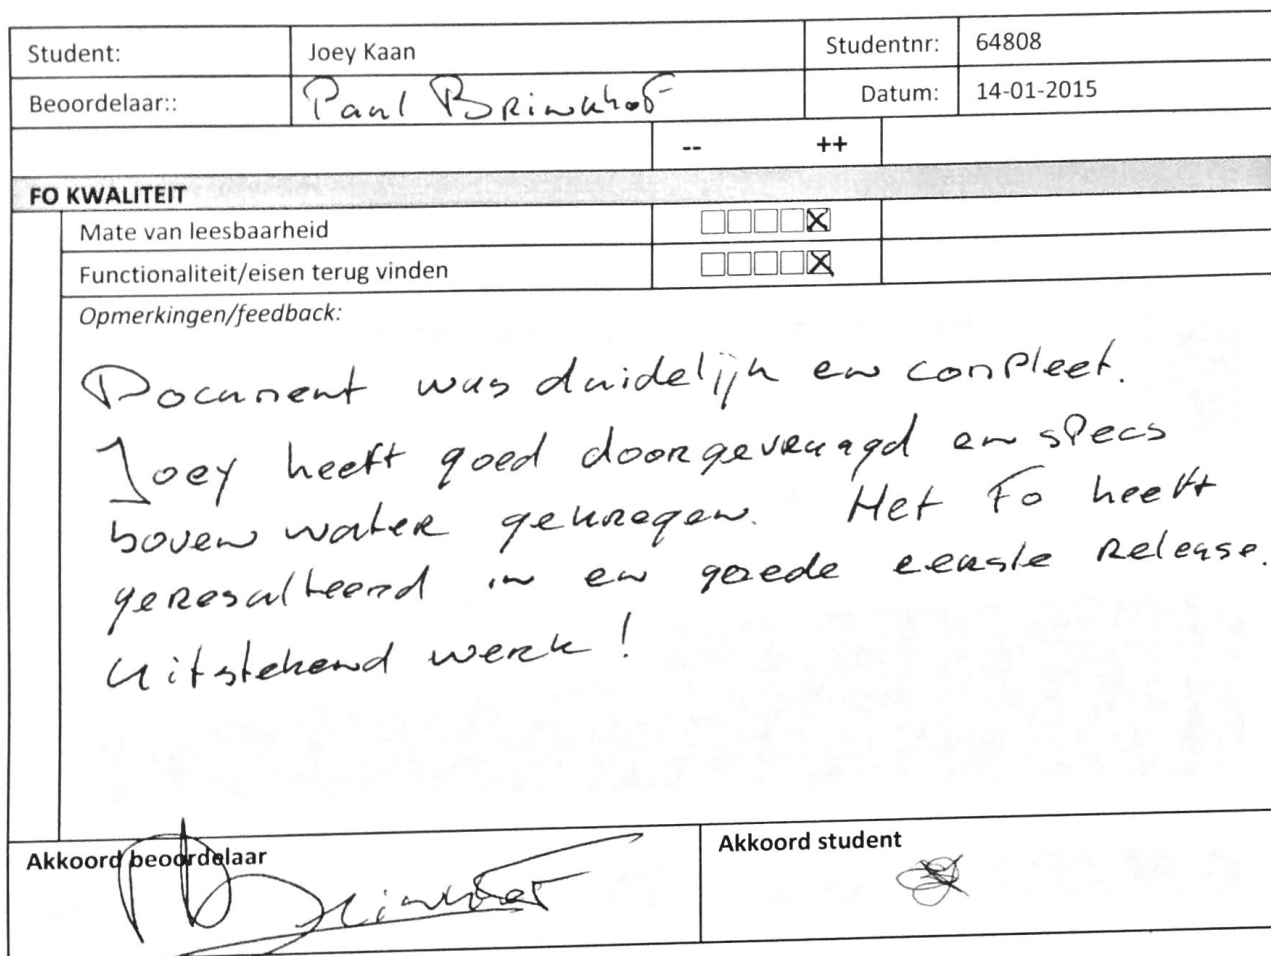 Student: Joey Kaan Studentnr: 64808
Beoordelaar:: Paul Brinkhof Datum: 14-01-2015
-- ++
FO KWALITEIT
Mate van leesbaarheid
Functionaliteit/eisen terug vinden
Opmerkingen/feedback:
Document was duidelijk en compleet.
Joey heeft goed doorgevraagd en specs
boven water gekregen. Het Fo heeft
geresulteerd in en goede eerste release.
Uitstekend werk!
Akkoord beoordelaar Akkoord student
Brinkhof